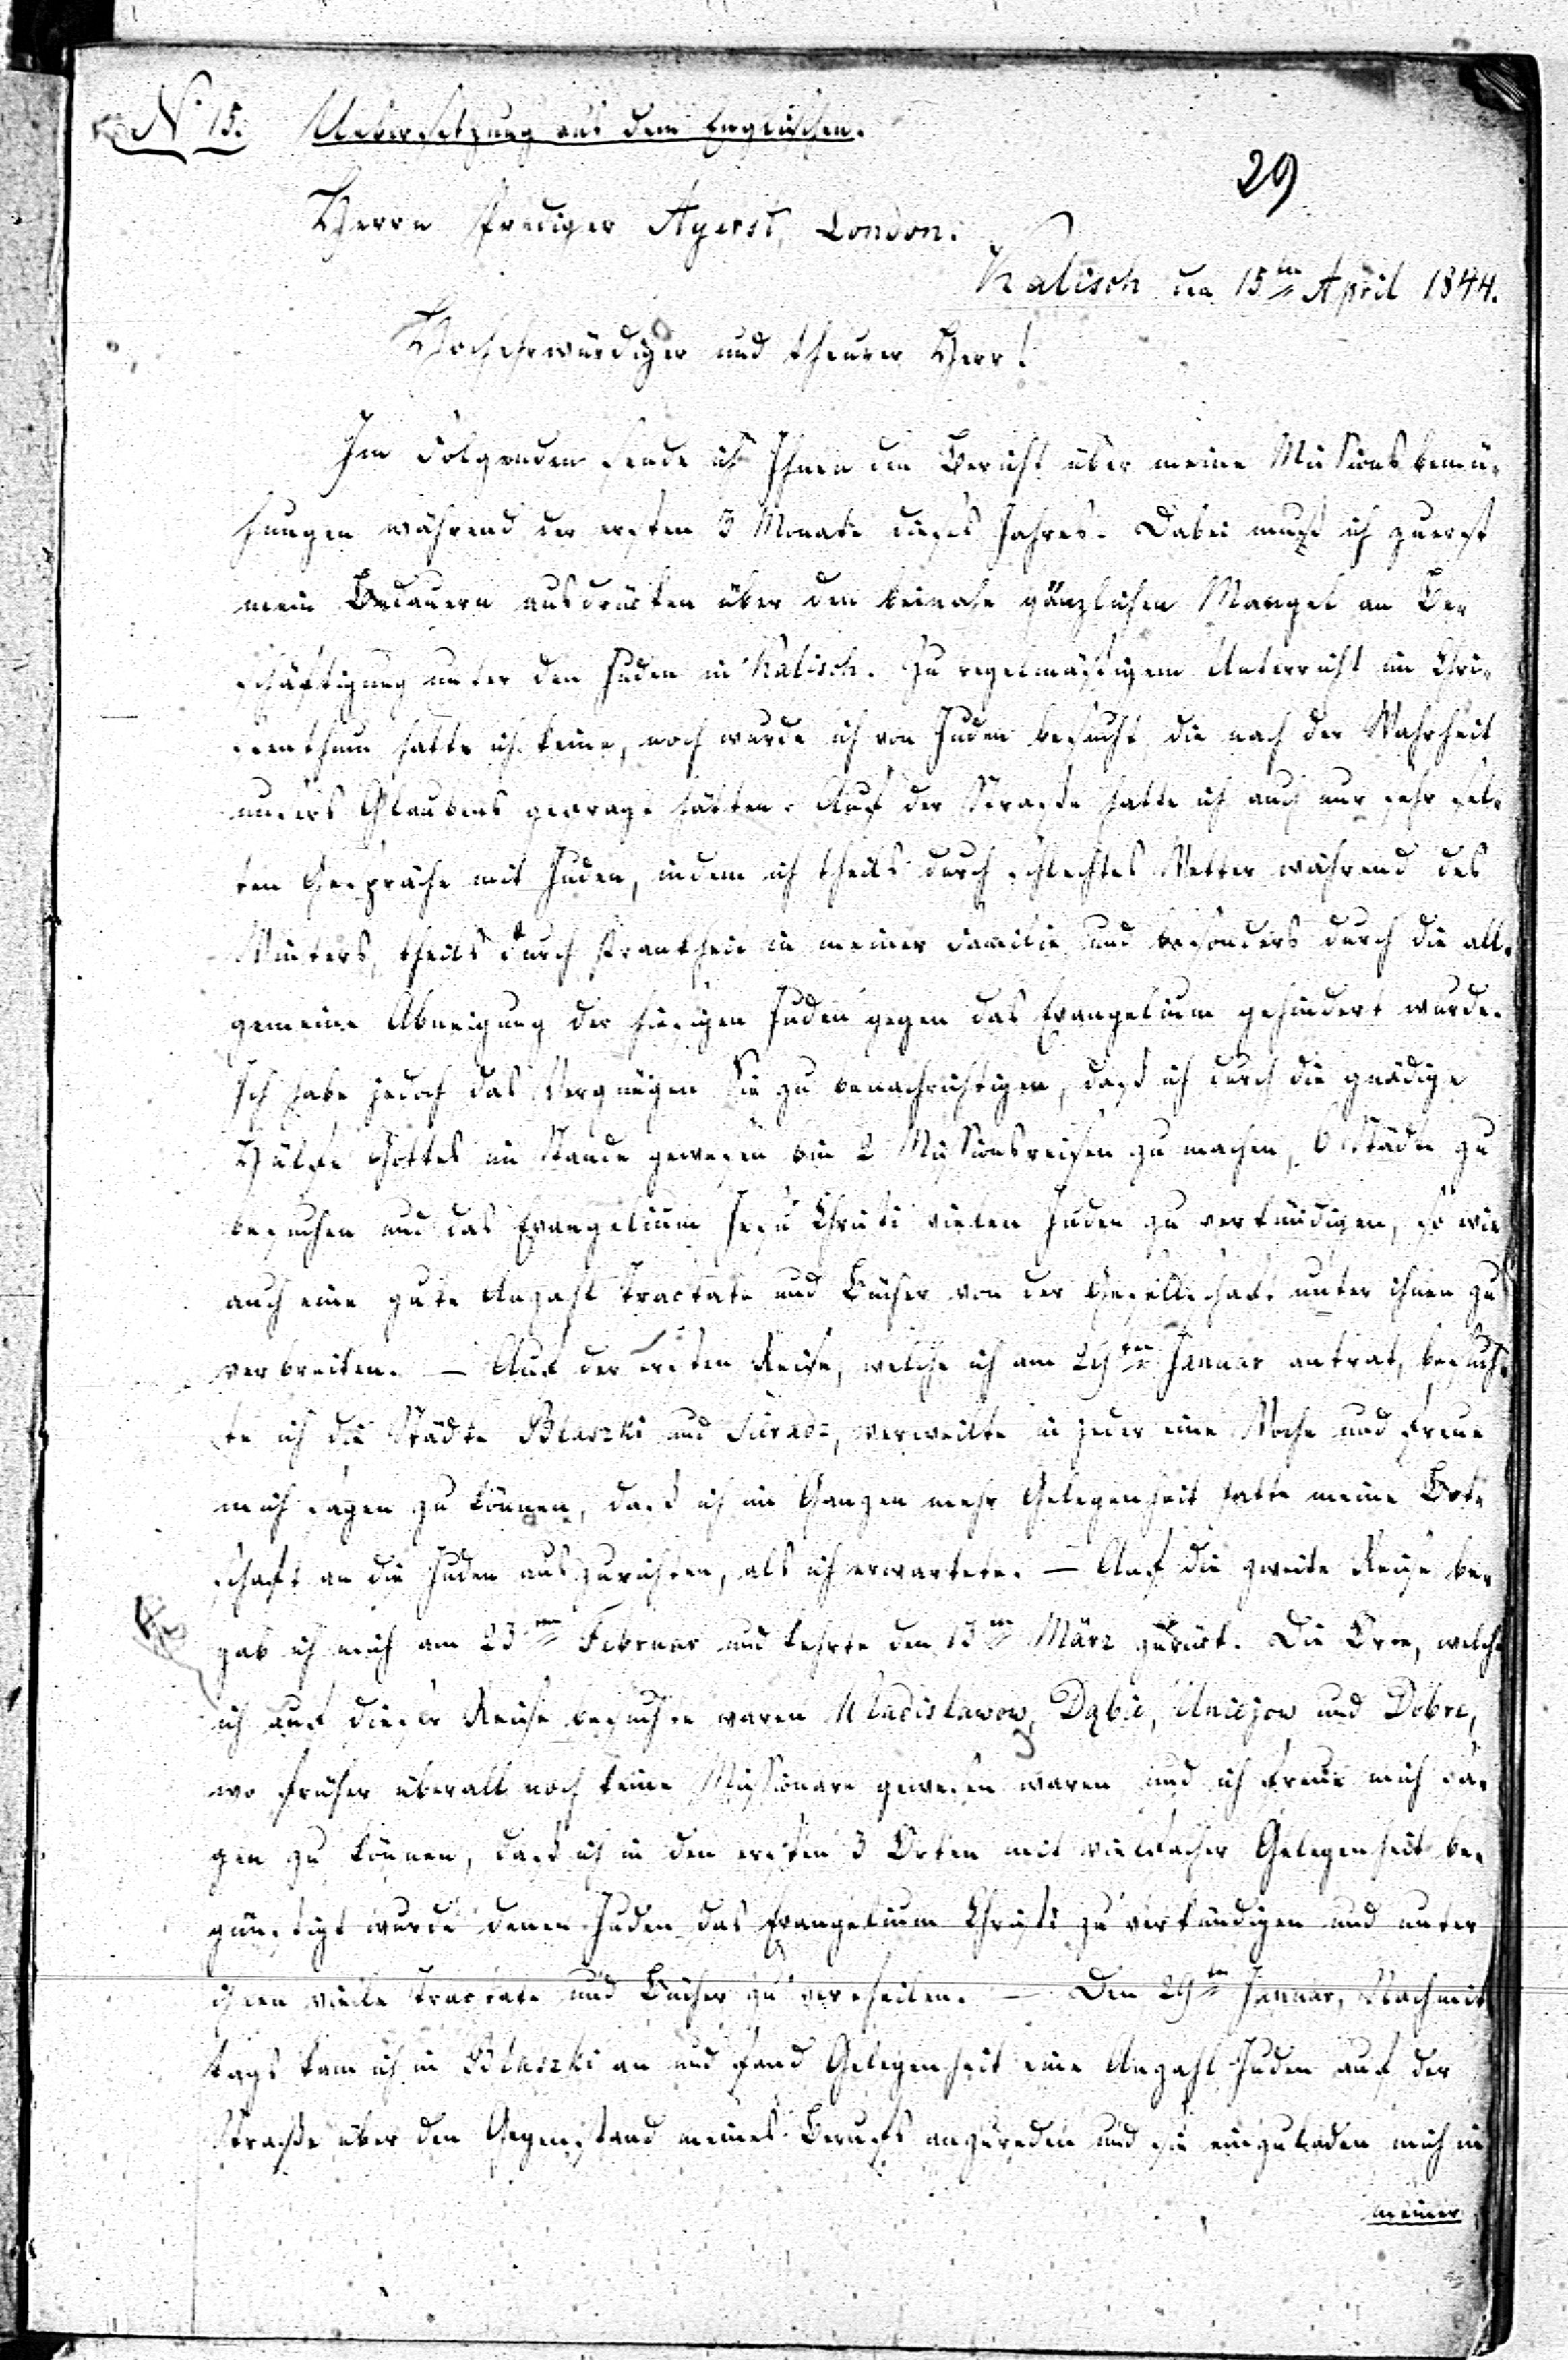 No 15. Uebersetzung aus dem Englischen.
29
Herrn Prediger Ayerst, London.
Kalisch den 15ten April 1844.
Hochehrwürdiger und theurer Herr!
Im Folgenden sende ich Ihnen den Bericht über meine Missionsbemü-
hungen während der ersten 3 Monate dieses Jahres. Dabei muß ich zuerst
mein Bedauern ausdrücken über den beinahe gänzlichen Mangel an Be-
schäftigung unter den Juden in Kalisch. Zu regelmäßigem Unterricht im Chri-
stenthum hatte ich keine, noch wurde ich von Juden besucht die nach der Wahrheit
unsers Glaubens gefragt hätten. Auf der Straße hatte ich auch nur sehr sel-
ten Gespräche mit Juden, indem ich theils durch schlechtes Wetter während des
Winters, theils durch Krankheit in meiner Familie und besonders durch die all-
gemeine Abneigung der hiesigen Juden gegen das Evangelium gehindert wurde.
Ich habe jedoch das Vergnügen Sie zu benachrichtigen, daß ich durch die gnädige
Hülfe Gottes im Stande gewesen bin 2 Missionsreisen zu machen, 6 Städte zu
besuchen und das Evangelium Jesu Christi vielen Juden zu verkündigen, so wie
auch eine gute Anzahl Tractate und Bücher von der Gesellschaft unter ihnen zu
verbreiten. — Auf der ersten Reise, welche ich am 29ten Januar antrat, besuch-
te ich die Städte Blaszki und Sieradz, verweilte in jeder eine Woche und freue
mich sagen zu können, daß ich im Ganzen mehr Gelegenheit hatte meine Bot-
schaft an die Juden auszurichten, als ich erwartete. — Auf die zweite Reise be-
gab ich mich am 23ten Februar und kehrte den 13ten März zurück. Die Orte, welche
ich auf dieser Reise besuchte waren Wladislawow, Dąbie, Uniejow und Dobre,
wo früher überall noch keine Missionare gewesen waren und ich freue mich sa-
gen zu können, daß ich in den ersten 3 Orten mit vielfacher Gelegenheit be-
günstigt wurde denen Juden das Evangelium Christi zu verkündigen und unter
ihnen viele Tractate und Bücher zu vertheilen. — Den 29ten Januar, Nachmit
tags kam ich in Blaszki an und fand Gelegenheit eine Anzahl Juden auf der
Straße über den Gegenstand meines Berufs anzureden und sie einzuladen mich in
meiner